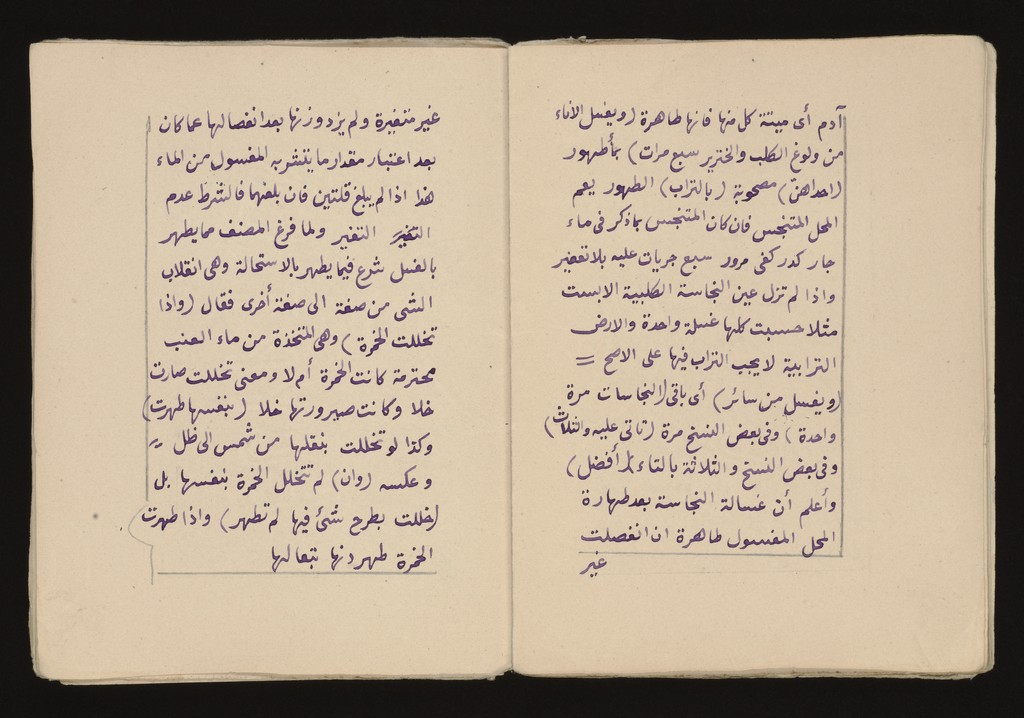 آدم أى ميتة كل منها فانها طاهرة (ويغسل الأناء
من ولوغ الكلب والخنزير سبع مرات) بمأ طهور
(احداهن) مصحوبة (بالتراب) الطهور يعم
المحل المتنجس فان كان المتنجس بماذكر فى ماء
جار كدر كفى مرور سبع جريات عليه بلا تعفير
واذا لم تزل عين النجاسة الكلبية الابست
مثلا حسبت كلها غسلة واحدة والارض
الترابية لا يجب التراب فيها على الاصح =
(ويغسل من سائر) أى باقى (النجاسات مرة
واحدة) وفى بعض النسخ مرة (تاتى عليه والثلاث)
وفى بعض النسخ والثلاثة بالتاء (أفضل)
وأعلم أن غسالة النجاسة بعد طهارة
المحل المغسول طاهرة ان انفصلت
غير
غير متغيرة ولم يزد وزنها بعد انفصالها عما كان
بعد اعتبار مقدار ما يتشربه المغسول من الماء
هذا اذا لم يبلغ قلتين فان بلغهما فالشرط عدم
التغير ولما فرغ المصنف مما يطهر
بالغسل شرع فيما يطهر بالاستحالة وهى انقلاب
الشى من صفة الى صفة أخرى فقال (واذا
تخللت الخمرة) وهى المتخذة من ماء العنب
محترمة كانت الخمرة أم لا ومعنى تخللت صارت
خلا وكانت صيرورتها خلا (بنفسها طهرت)
وكذا لو تخللت بنقلها من شمس الى ظل =
وعكسه (وان) لم تتخلل الخمرة بنفسها بل
(خللت بطرح شئ فيها لم تطهر) واذا طهرت
الخمرة طهر دنها تبعا لها